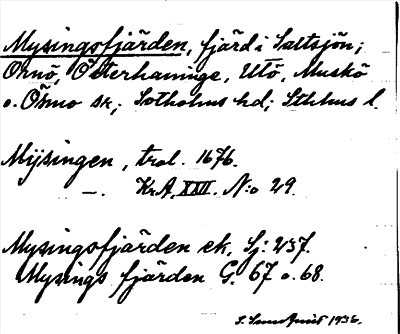 Mysingsfjärden, fjärd i Saltsjön;
Ornö, Österhaninge, Utö, Muskö
o. Ösmo sk; Sotholms hd; Sthlms l.
Mÿsingen, trol. 1676.
—. KrA, XXII. N:o 29.
Mysingsfjärden ek, Sj: 237.
Mysings fjärden G. 67 o. 68.
1936.